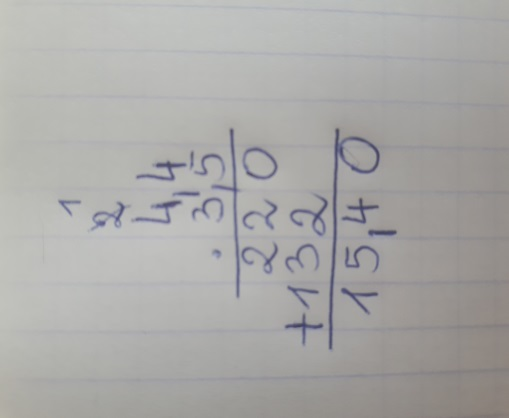 1
2
4,4
. 3,5
220
+132
15,40